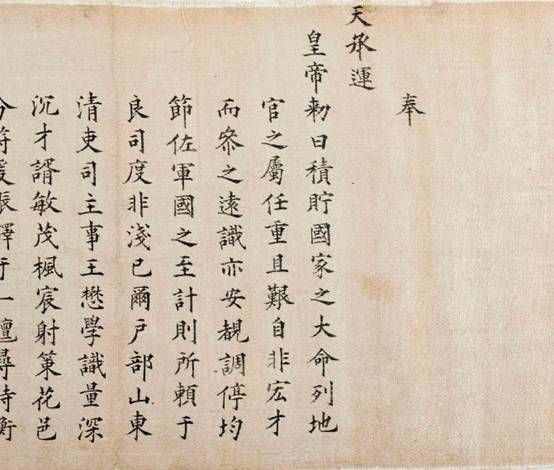 奉
天承運
皇帝勅曰積貯國家之大命列地
官之屬任重且艱自非宏才
而叅之遠識亦安覩調停均
節佐軍國之至計則所賴于
良司度非淺已爾戶部山東
清吏司主事王懋學識量深
沉才諝敏茂楓宸射策花邑
振鐸于一尋持衡